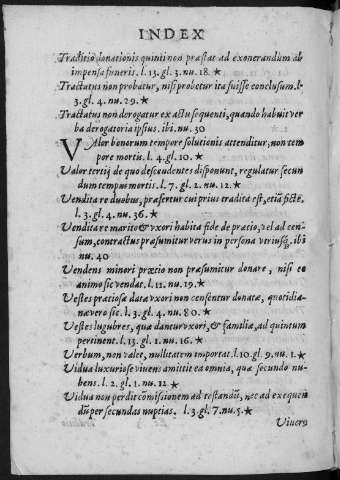 INDEX
Traditio donationis quinti non præstat ad exonerandum ab
impensa funeris. l.13. gl.3. nu.18. ★
Tractatus non probatur, nisi probetur ita fuisse conclusum. l.
3. gl. 4. nu. 29. ★
Tractatus non derogatur ex actu sequenti, quando habuit ver
ba derogatoria ipsius. ibi. nu. 30
VAlor bonorum tempore solutionis attenditur, non tem
pore mortis. l. 4. gl. 10. ★
Valor tertij de quo descendentes disponunt, regulatur secun
dum tempus mortis. l. 7. gl. 2. nu. 12. ★
Vendita re duobus, præfertur cui prius tradita est, etiã ficte.
l. 3. gl. 4. nu. 36. ★
Vendita re marito & vxori habita fide de precio, vel ad cen-
sum, contractus præsumitur verus in persona vtriusq;. ibi
nu. 40
Vendens minori præcio non præsumitur donare, nisi eo
animo sic vendat. l. 11. nu. 19. ★
Vestes pratiosæ data vxori non censentur donatæ, quotidia-
na vero sic. l. 3. gl. 4. nu. 80. ★
Vestes lugubres, quæ dantur vxori, & familiæ, ad quintum
pertinent. l. 13. gl. 1. nu. 16. ★
Verbum, non valet, nullitatem importat. l. 10. gl. 9. nu. 1. ★
Vidua luxuriose viuens amittit ea omnia, quæ secundo nu-
bens. l. 2. gl. 1. nu. 12 ★
Vidua non perdit comisionem ad testandũ, nec ad exequen
dũ per secundas nuptias. l. 3. gl. 7. nu. 5. ★
Viuere